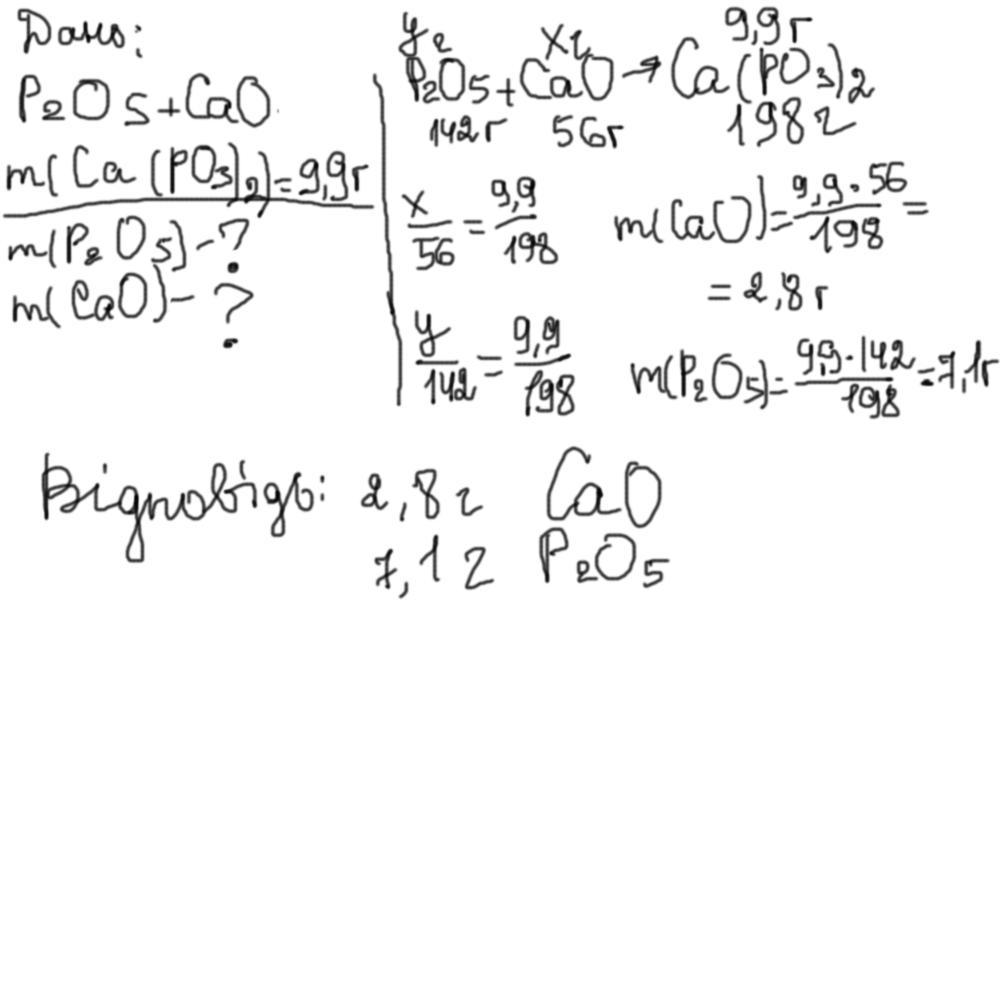 Дано:
P₂O₅+CaO
m(Ca(PO₃)₂)=9,9г
m(P₂O₅)-?
m(CaO)-?
yг xг 9,9г
P₂O₅+CaO→Ca(PO₃)₂
142г 56г 198г
x/56 = 9,9/198 m(CaO)= 9,9·56/198 =
= 2,8г
y/142 = 9,9/198 m(P₂O₅)= 9,9·142/198 =7,1г
Відповідь: 2,8г CaO
7,1г P₂O₅